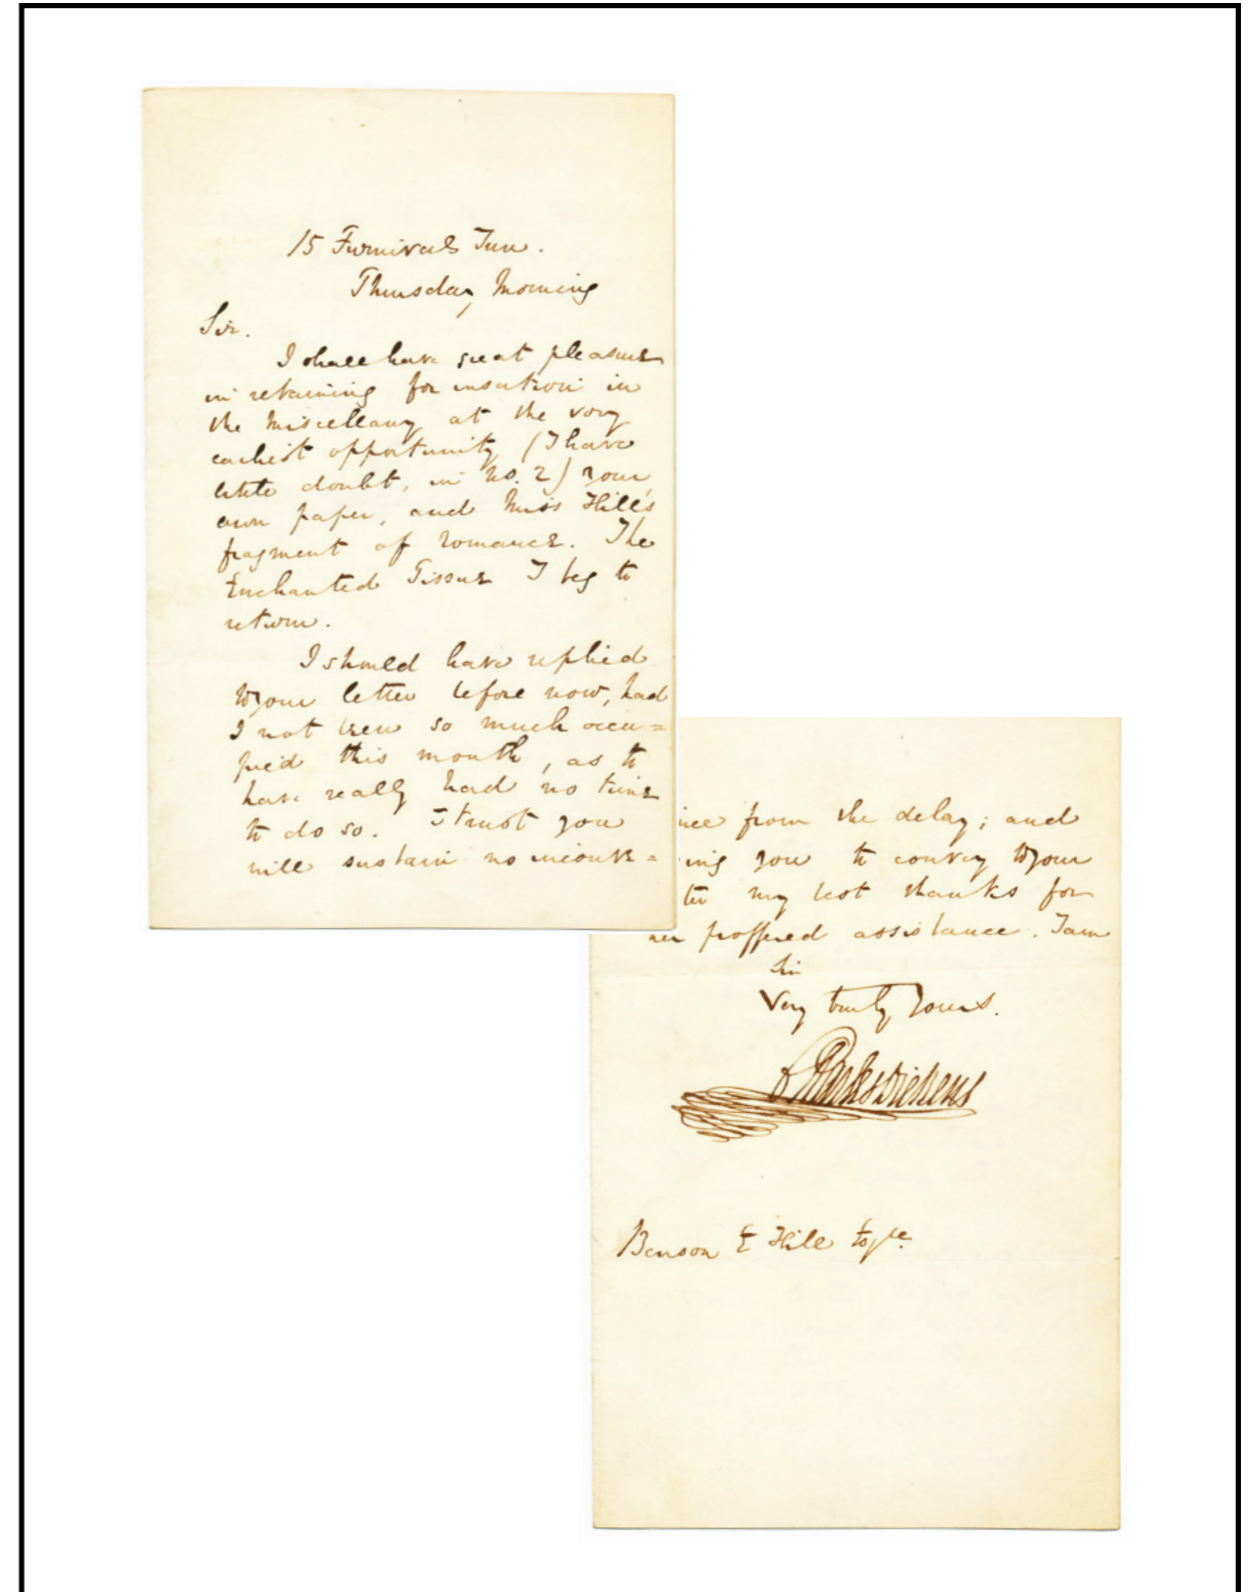 15 Furnivals Inn.
Thursday Morning
Sir.
I shall have great pleasure
in retaining for insertion in
the Miscellany at the very
earliest opportunity (I have
little doubt, in No. 2) your
own paper, and Miss Hill's
fragment of romance. The
Enchanted Tissue I beg to
return.
I should have replied
to your letter before now, had
I not been so much occu=
pied this month, as to
have really had no time
to do so. I trust you
will sustain no inconve=
from the delay; and
you to convey to your
my best thanks for
her proffered assistance. I am
Sir
Very truly Yours.
Charles Dickens
Benson E Hill Esqre.